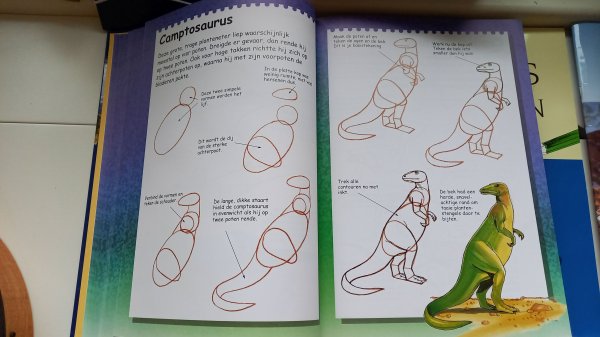 Camptosaurus
Deze grote, trage planteneter liep waarschijnlijk
meestal op vier poten. Dreigde er gevaar, dan rende hij
op twee poten. Ook voor hoge takken richtte hij zich op
zijn achterpoten op, waarna hij met zijn voorpoten de
bladeren pakte.
Deze twee simpele
vormen worden het
lijf.
In de platte kop was
weinig ruimte, met
hersenen dus.
Dit wordt de dij
van de sterke
achterpoot.
Verbind de vormen en
teken de schouder.
De lange, dikke staart
hield de camptosaurus
in evenwicht als hij op
twee poten rende.
Maak de poten af en
teken de ogen en de bek.
Dit is je basistekening.
Werk nu de kop uit.
Teken de bek iets
smaller dan hij was.
Trek alle
contouren na met
inkt.
De bek had een
harde, snavel-
achtige rand om
taaie planten-
stengels door te
bijten.
S
N